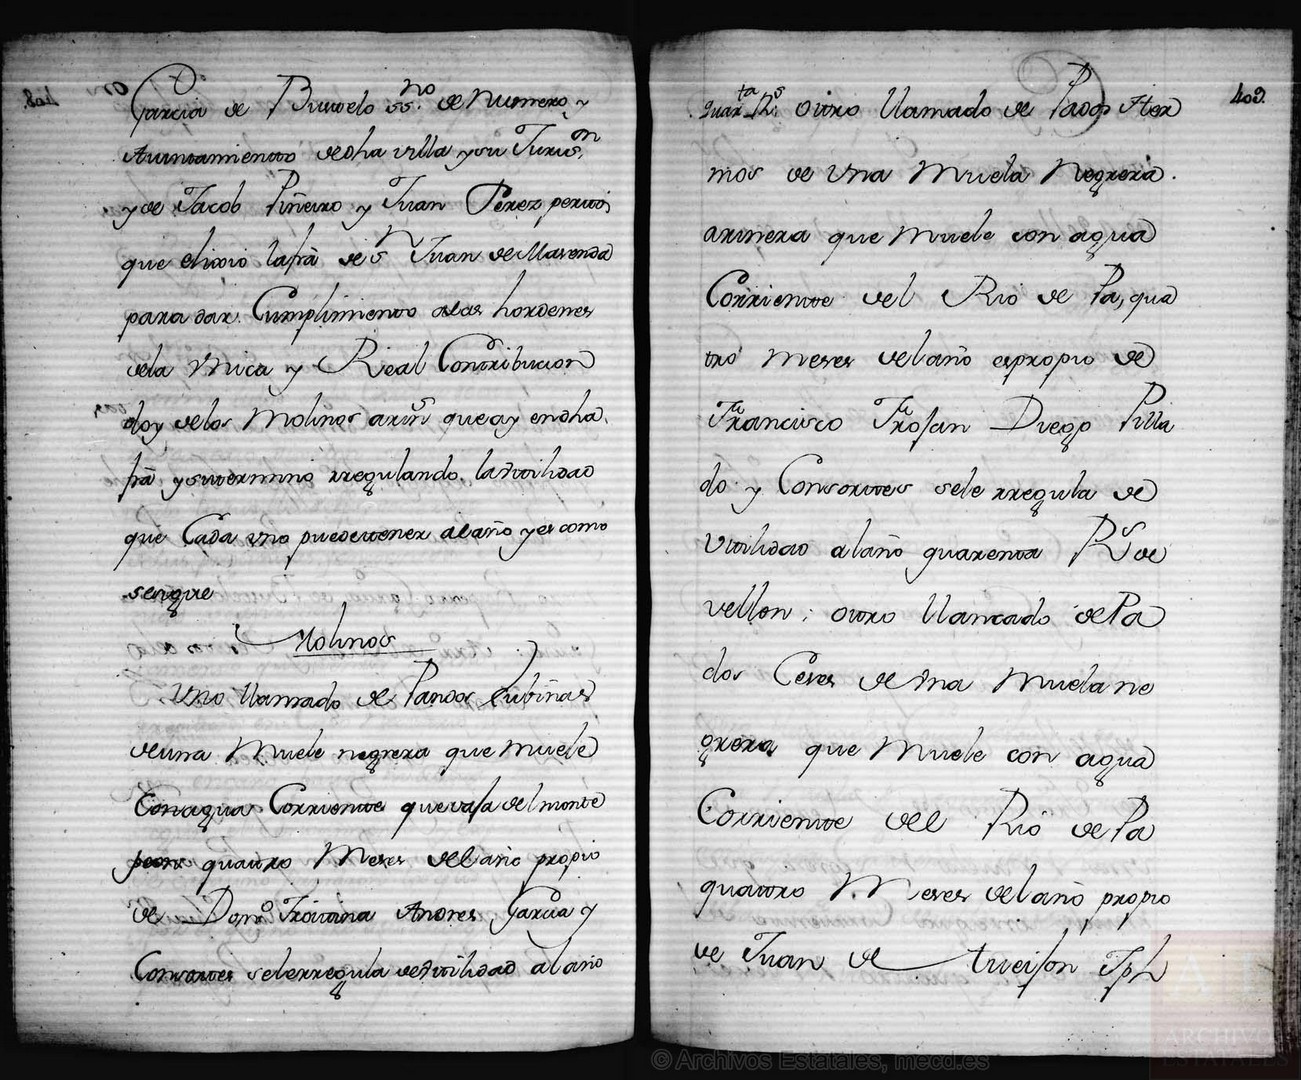 Garcia de Buruelo ss.no de Numero y
Aiuntamiento dedha villa ysu Juris.on
y de Jacob Piñeiro y Juan Perez peritos
que elixio lafra de Sn Juan de
para dar Cumplimiento alas hordenes
dela Vnica y Real Contribucion
doy delos Molinos arins queay endha
fra ysutermino rregulando lautilidad
que Cada vno puedetener alaño yes como
sesigue
Molinos
Vno llamado de Pandos Lubiñas
deuna Muele negrera que muele
Conagua Corriente quevaja delmonte
quatro Meses delaño propio
de Domo Andres Garcia y
Consortes selerregula deutilidad alaño
409.
quarta Rs. outro llamado de Pados
mos de vna Muela Negrera.
arinera que Muele con agua
Corriente del Rio de Pa, qua
tro meses delaño espropio de
Francisco Diego Pilla
do y Consortes sele rregula de
Vtilidad alaño quarenta Rs de
vellon; outro llamado de Pa
dos Ceres de vna Muela ne
grera que Muele con agua
Corriente del Rio de Pa
quatro Meses delaño propio
de Juan de Jph
© Archivos Estatales, mecd.es
ARCHIVOS
ESTATALES